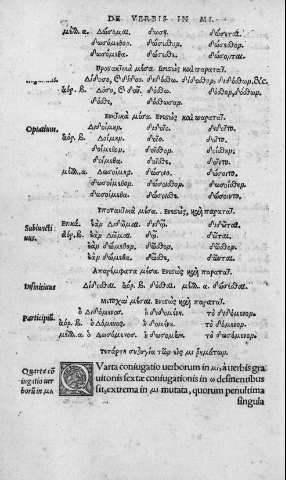 DE VERBIS IN MI.
μέλ. α. Δώσομαι. δώσῃ. δώσεται.
δωσόμεθον. δώσεσθον. δώσεσθον.
δωσόμεθα. δώσεσθε. δώσονται.
Προσακτικὰ μέσα. Ενεσὼς καὶ παρατατ.
Δίδοσο, διδόσθω. δίδοσθον, διδόσθων, &c.
ἀόρ. β. Δόσο, δόσθω. δόσθον, δόσθων.
δόσθε, δόσθωσαν.
Εὐκτικὰ μέσα. Ενεσὼς καὶ παρατατ.
Optatiuus. Διδοίμην. διδοῖο. διδοῖτο.
ἀόρ. β. Δοίμην. δοῖο. δοῖτο.
δοίμεθον. δοῖσθον. δοίσθην.
δοίμεθα. δοῖσθε. δοῖντο.
μέλλ. α. Δωσοίμην. δώσοιο. δώσοιτο.
δωσοίμεθον. δώσοισθον. δωσοίσθην.
δωσοίμεθα. δώσοισθε. δώσοιντο.
Υποτακτικὰ μέσα. Ενεσὼς, καὶ παρατατ.
Subiuncti Ενικά. ἐὰν Διδῶμαι. διδῷ. διδῶται.
uus. ἀόρ. β. ἐὰν Δῶμαι. δῷ. δῶται.
ἐὰν δώμεθον. δῶσθον. δῶσθον.
ἐὰν δώμεθα. δῶσθε. δῶνται.
Απαρέμφατα μέσα. Ενεσὼς, καὶ παρατατ.
Infinitiuus Δίδοσθαι. ἀόρ. β. Δόσθαι. μέλλ. α. δώσεσθαι.
Μετοχαὶ μέσαι. Ενεσὼς, καὶ παρατατ.
Participiũ. ὁ Διδόμενος. ἡ διδομένη. τὸ διδόμενον.
ἀόρ. β. ὁ Δόμενος. ἡ δομένη. τὸ δόμενον.
μέλλ. α. ὁ Δωσόμενος. ἡ δωσομένη. τὸ δωσόμενον.
Τετάρτη συζυγία τῶν εἰς μι ῥημάτων.
Quarta cõ
iugatio uer
borũ in μι.
QVarta coniugatio uerborum in μι, à uerbis gra
uitonis sextæ coniugationis in ω desinentibus
fit, extrema in μι mutata, quorum penultima
singula